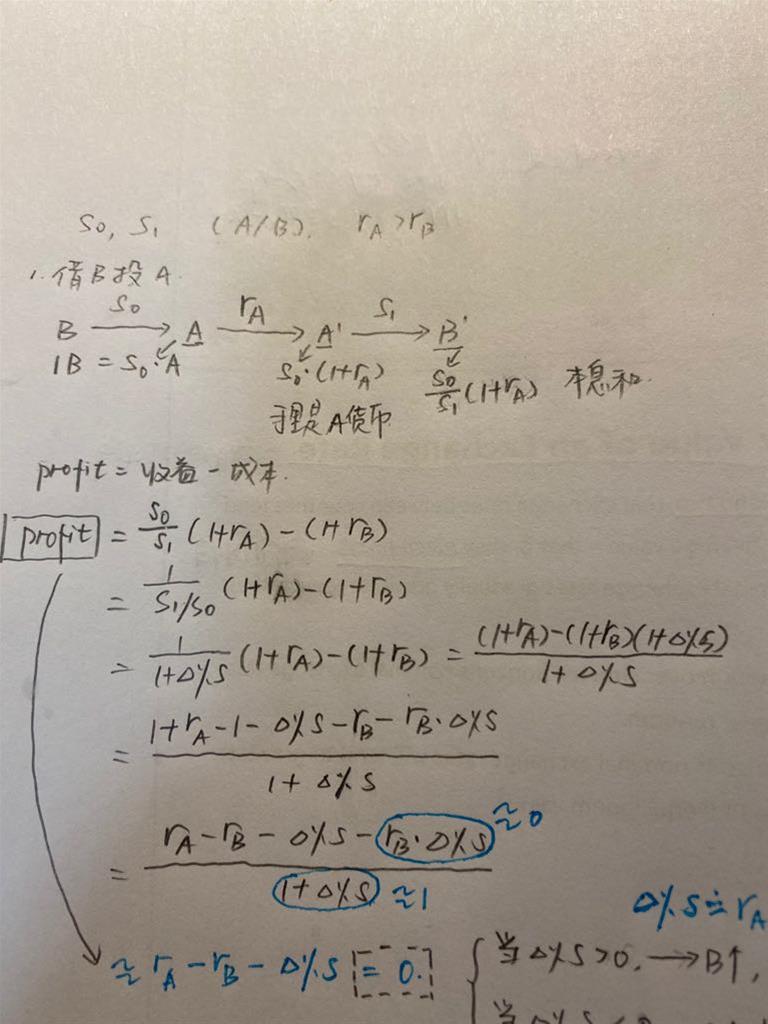 S0, S1 (A/B). rA>rB
1. 借B投A.
S0 rA S1
B → A → A' → B'
1B = S0·A S0·(1+rA) S0/S1(1+rA) 本息和.
于是A货币
profit = 收益 - 成本.
profit = S0/S1 (1+rA) - (1+rB)
= 1/(S1/S0) (1+rA) - (1+rB)
= 1/(1+Δ%S) (1+rA) - (1+rB) = ((1+rA)-(1+rB)(1+Δ%S))/(1+Δ%S)
= (1+rA-1-Δ%S-rB-rB·Δ%S)/(1+Δ%S)
= (rA-rB-Δ%S-rB·Δ%S)/(1+Δ%S) ≈0 ≈1
≈ rA-rB-Δ%S = 0.
Δ%S ≐ rA
当Δ%S>0, → B↑,
当Δ%S